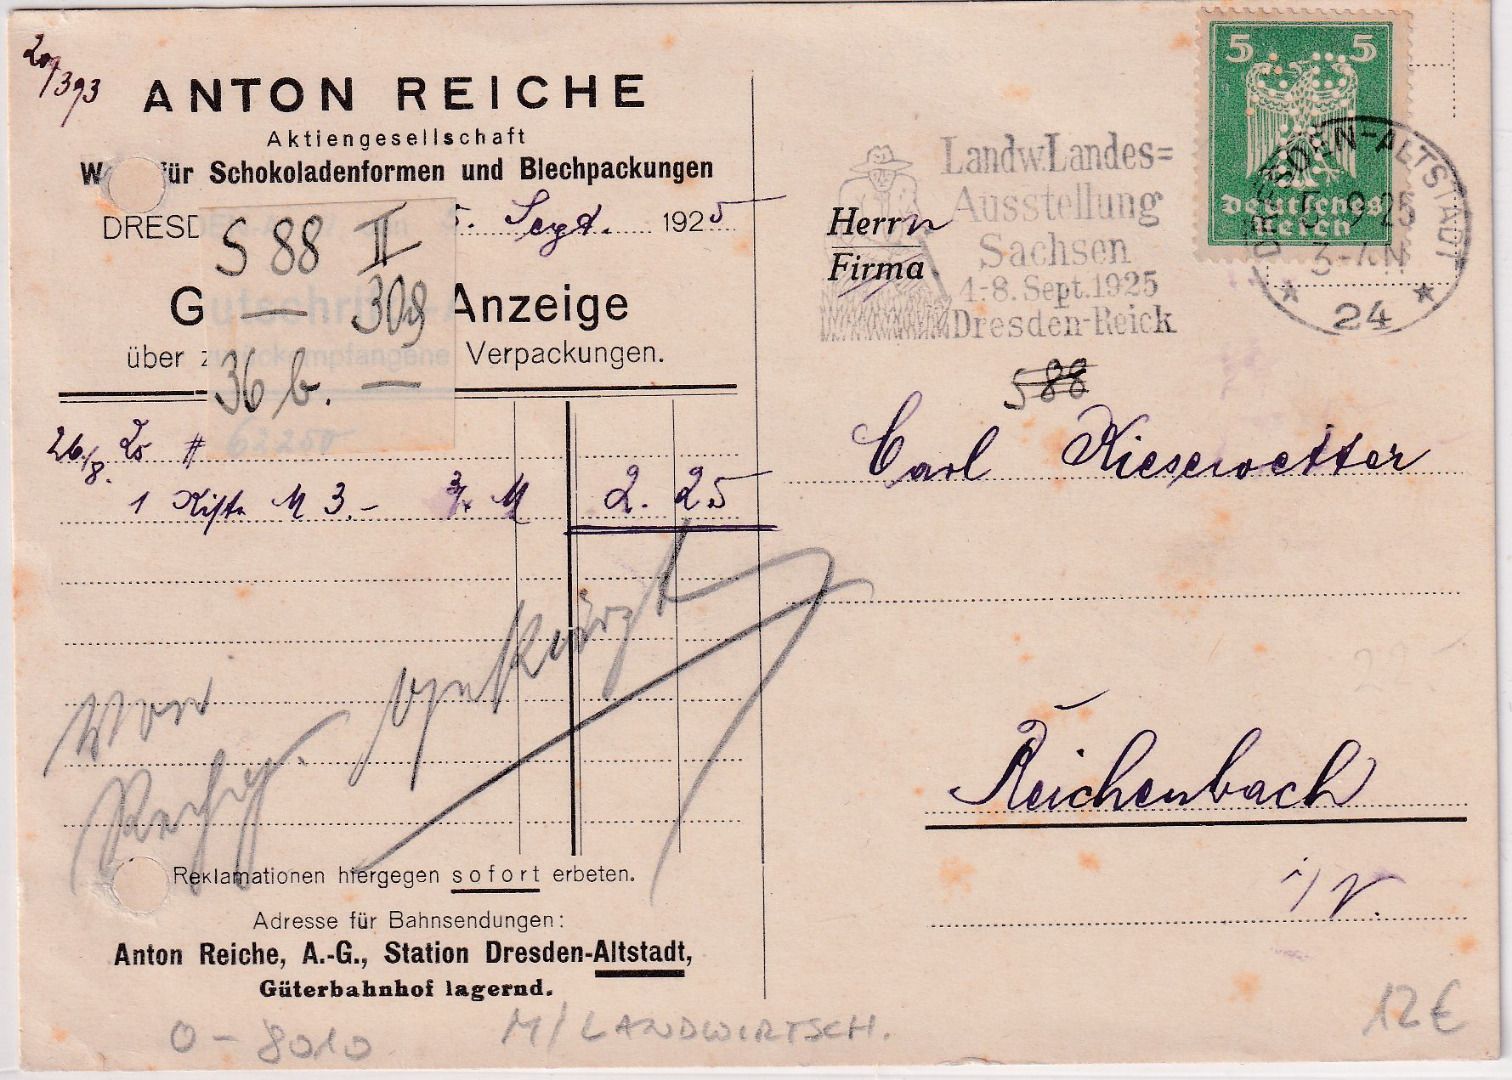 20/393
ANTON REICHE
Aktiengesellschaft
für Schokoladenformen und Blechpackungen
DRESD 5. Sept. 1925
S 88 II
G utschrif Anzeige
— 309
über zurückempfangene Verpackungen.
36 b. —
62250
26/8. 20 #
1 Kiste M 3.- 3/4 M 2. 25
von
Rechg. gekürzt
Reklamationen hiergegen sofort erbeten.
Adresse für Bahnsendungen:
Anton Reiche, A.-G., Station Dresden-Altstadt,
Güterbahnhof lagernd.
O-8010
M/LANDWIRTSCH.
5 5
Deutsches
Reich
DRESDEN-ALTSTADT
5.9.25
3-4N
* 24 *
Landw. Landes=
Ausstellung
Sachsen
4-8. Sept. 1925
Dresden-Reick
Herrn
Firma
S 88
Carl Kiesewetter
Reichenbach
i/V.
12€